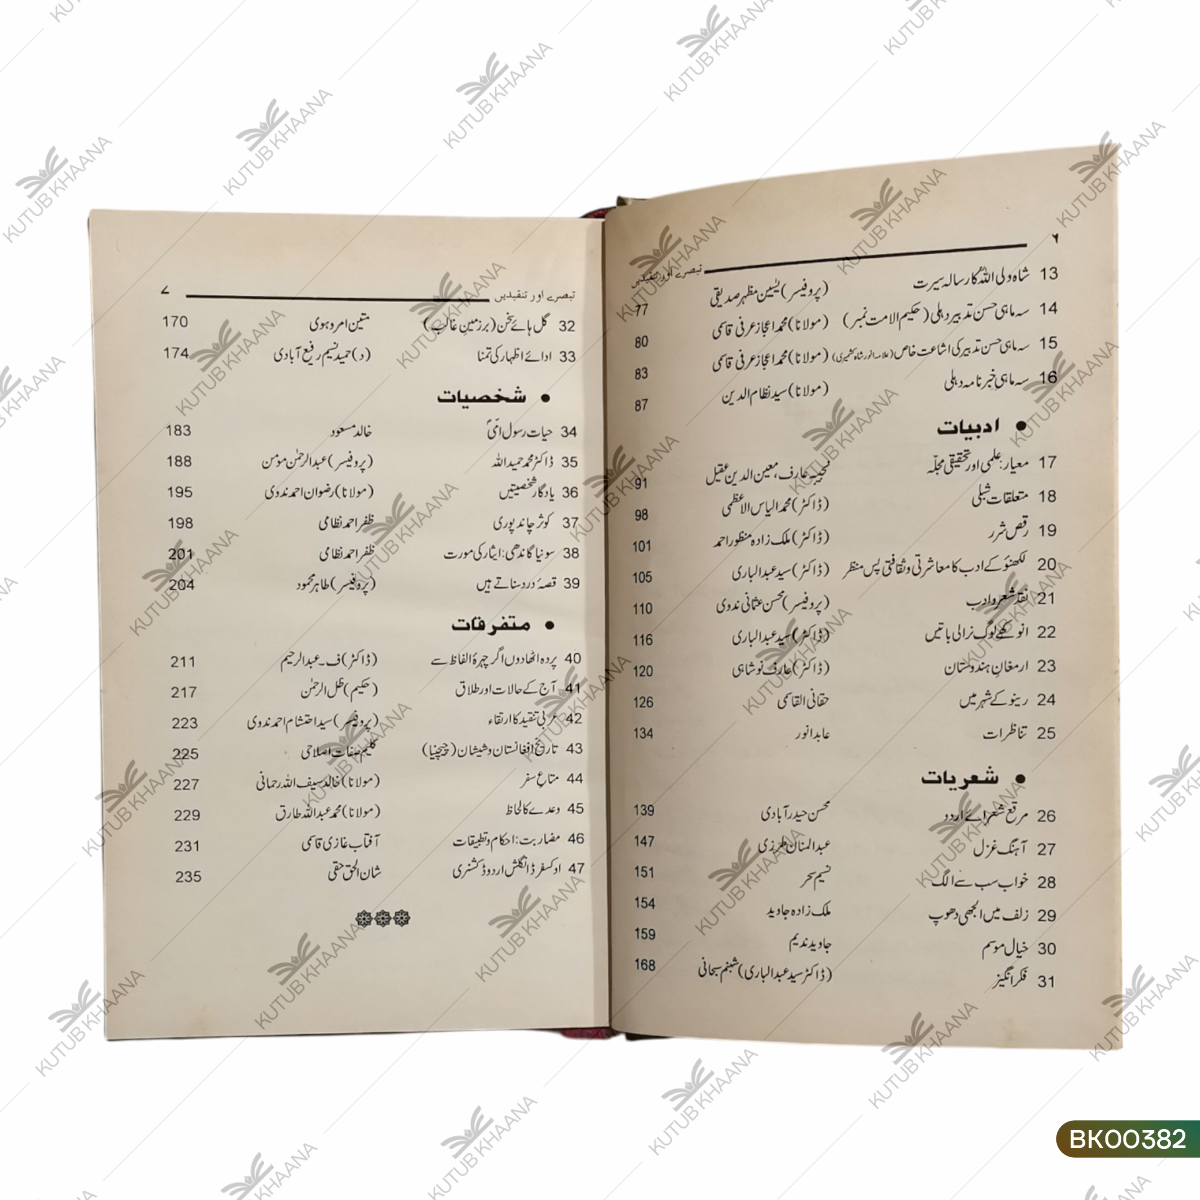 ۶
تبصرے اور تنقیدیں
13 شاہ ولی اللہؒ کا رسالہ سیرت (پروفیسر) یٰسین مظہر صدیقی 77
14 سہ ماہی حسن تدبیر دہلی (حکیم الامت نمبر) (مولانا) محمد اعجاز عرفی قاسمی 80
15 سہ ماہی حسن تدبیر کی اشاعت خاص (علامہ انور شاہ کشمیری) (مولانا) محمد اعجاز عرفی قاسمی 83
16 سہ ماہی خبرنامہ دہلی (مولانا) سید نظام الدین 87
● ادبیات
17 معیار: علمی اور تحقیقی مجلّہ نجیبہ عارف، معین الدین عقیل 91
18 متعلقات شبلی (ڈاکٹر) محمد الیاس الاعظمی 98
19 رقص شرر (ڈاکٹر) ملک زادہ منظور احمد 101
20 لکھنؤ کے ادب کا معاشرتی و ثقافتی پس منظر (ڈاکٹر) سید عبدالباری 105
21 نقد شعر و ادب (پروفیسر) محسن عثمانی ندوی 110
22 انوکھے لوگ نرالی باتیں (ڈاکٹر) سید عبدالباری 116
23 ارمغانِ ہندوستان (ڈاکٹر) عارف نوشاہی 120
24 رینو کے شہر میں حقانی القاسمی 126
25 تناظرات عابد انور 134
● شعریات
26 مرقع شعرائے اردو محسن حیدرآبادی 139
27 آہنگ غزل عبدالمنان طرزی 147
28 خواب سب سے الگ نسیم سحر 151
29 زلف میں الجھی دھوپ ملک زادہ جاوید 154
30 خیال موسم جاوید ندیم 159
31 فکر انگیز (ڈاکٹر سید عبدالباری) شبنم سبحانی 168
تبصرے اور تنقیدیں
۷
32 گل ہائے سخن (بر زمین غالب) متین امروہوی 170
33 ادائے اظہار کی تمنا (د) حمید نسیم رفیع آبادی 174
● شخصیات
34 حیات رسول امیؐ خالد مسعود 183
35 ڈاکٹر محمد حمید اللہ (پروفیسر) عبدالرحمٰن مومن 188
36 یادگار شخصیتیں (مولانا) رضوان احمد ندوی 195
37 کوثر چاند پوری ظفر احمد نظامی 198
38 سونیا گاندھی: ایثار کی مورت ظفر احمد نظامی 201
39 قصۂ درد سناتے ہیں (پروفیسر) طاہر محمود 204
● متفرقات
40 پردہ اٹھا دوں اگر چہرۂ الفاظ سے (ڈاکٹر) ف۔ عبدالرحیم 211
41 آج کے حالات اور طلاق (حکیم) ظل الرحمٰن 217
42 عربی تنقید کا ارتقاء (پروفیسر) سید احتشام احمد ندوی 223
43 تاریخ افغانستان و شیشان (چیچنیا) کلیم صفات اصلاحی 225
44 متاعِ سفر (مولانا) خالد سیف اللہ رحمانی 227
45 وعدے کا لحاظ (مولانا) محمد عبداللہ طارق 229
46 مضاربت: احکام و تطبیقات آفتاب غازی قاسمی 231
47 اوکسفرڈ انگلش اردو ڈکشنری شان الحق حقی 235
KUTUB KHAANA
BK00382